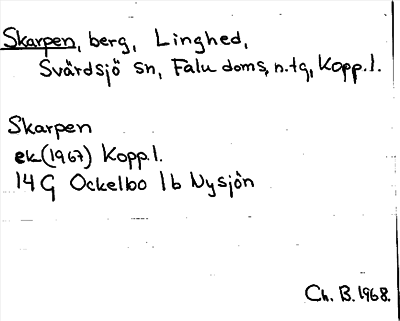 Skarpen, berg, Linghed,
Svärdsjö sn, Falu doms, n.tg, Kopp.l.
Skarpen
ek(1967) Kopp.l.
14G Ockelbo 1b Nysjön
Ch. B. 1968.